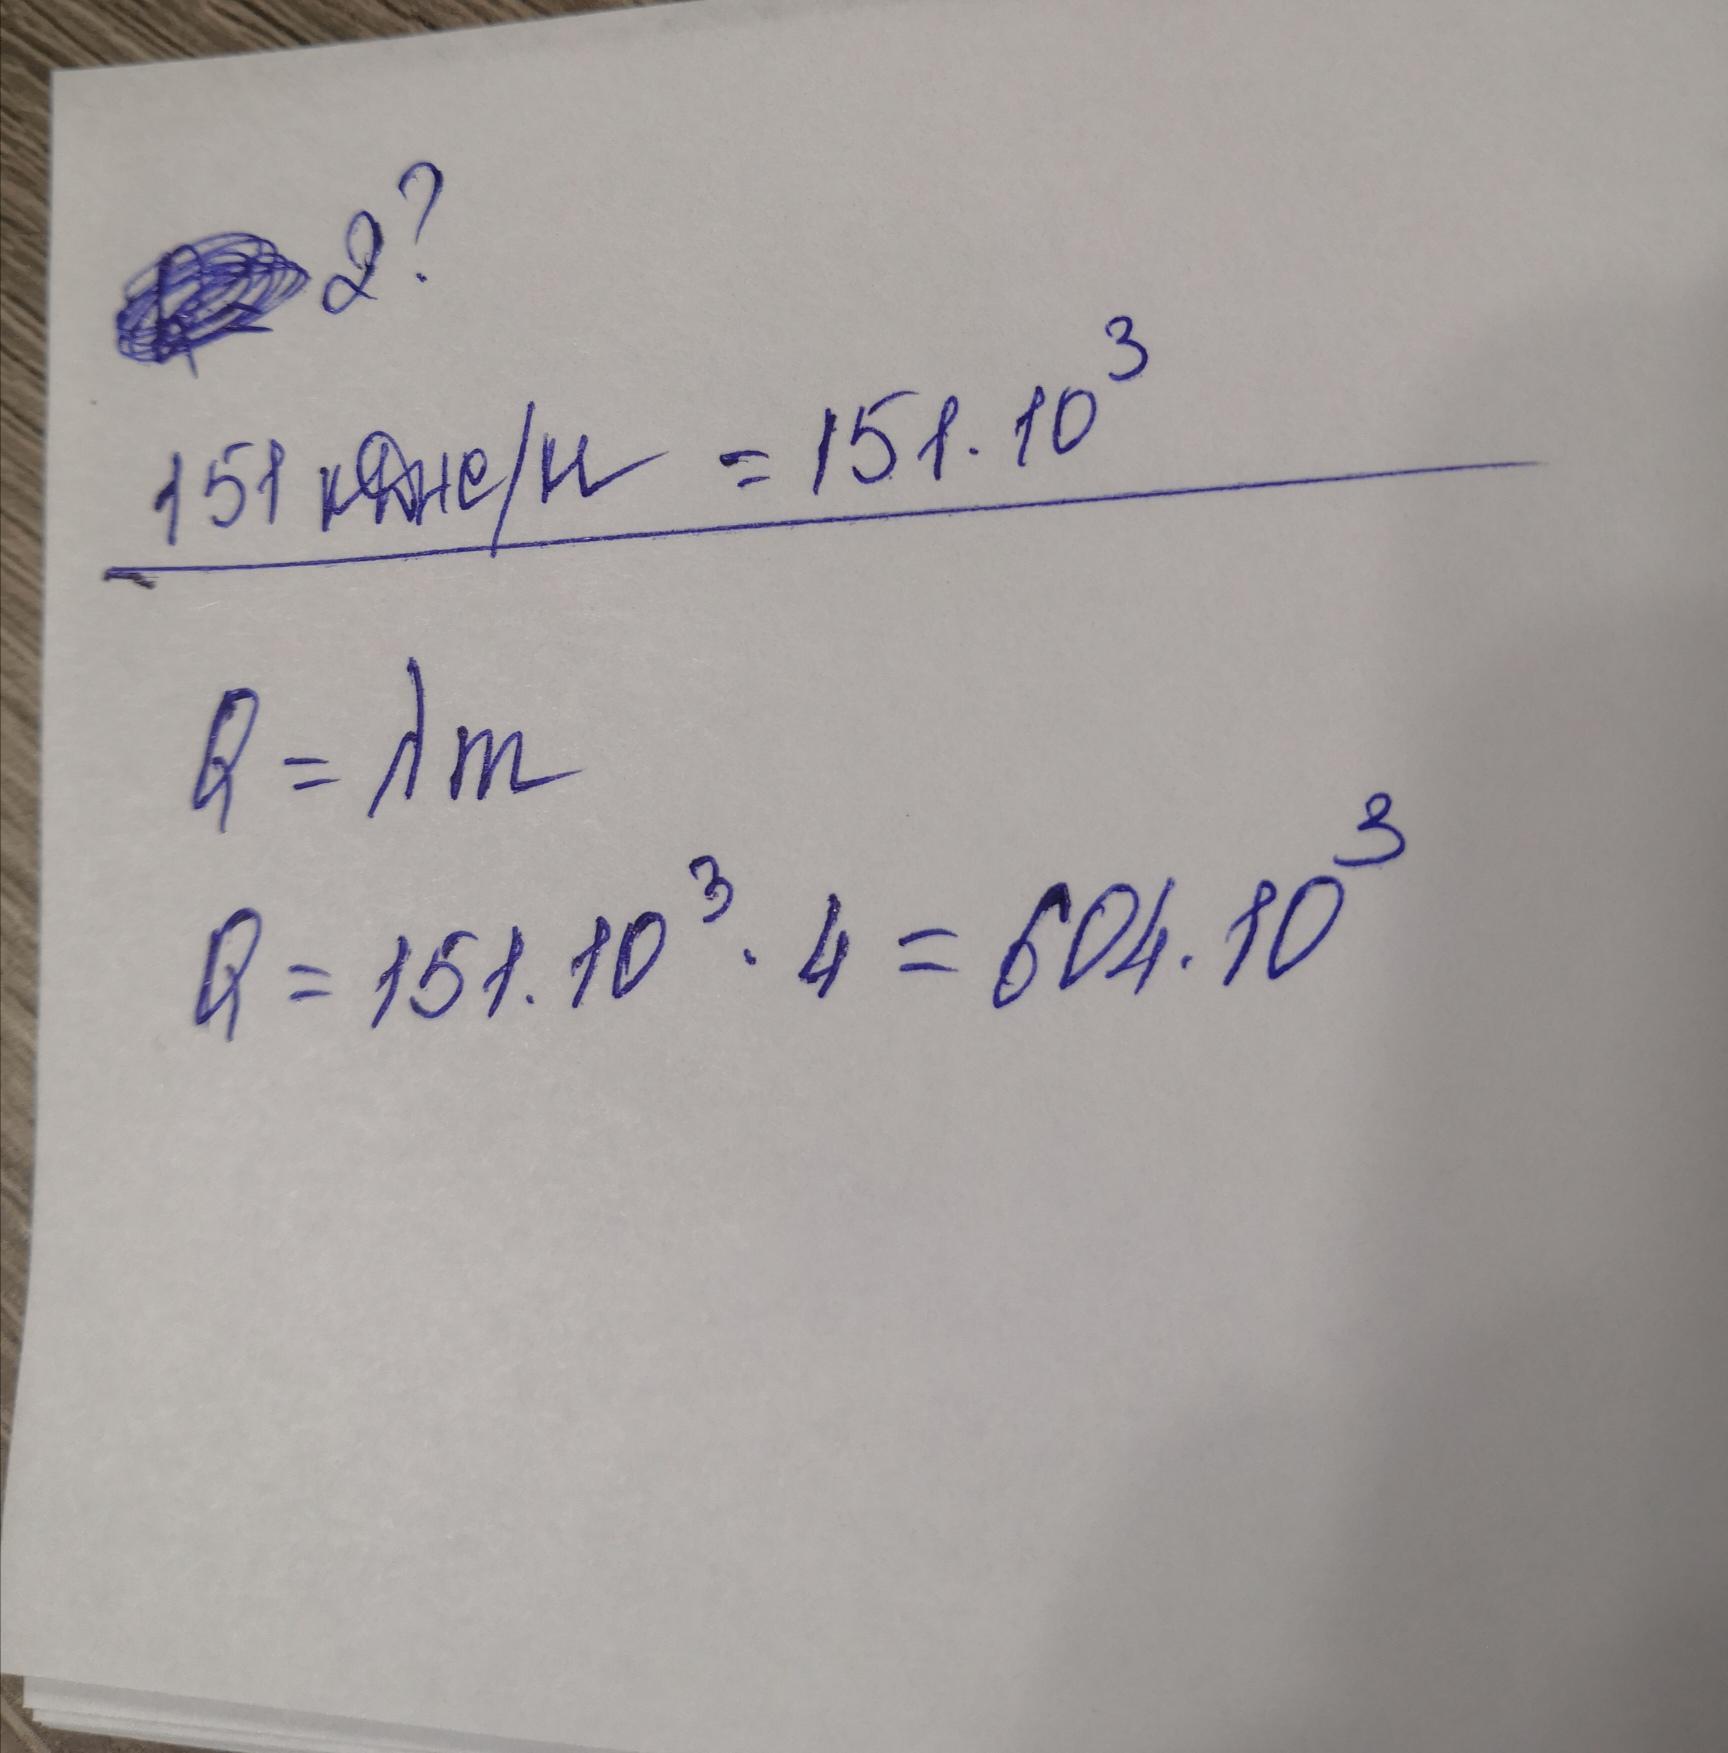 2?
151 кДже/к = 151 · 10³
Q = λm
Q = 151 · 10³ · 4 = 604 · 10³